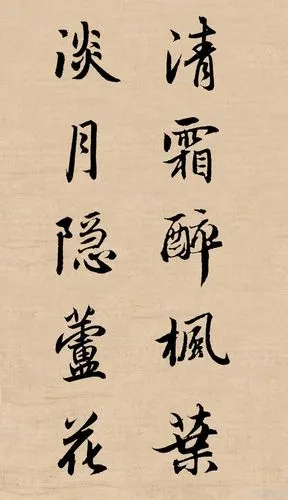 清霜醉楓葉
淡月隐蘆花